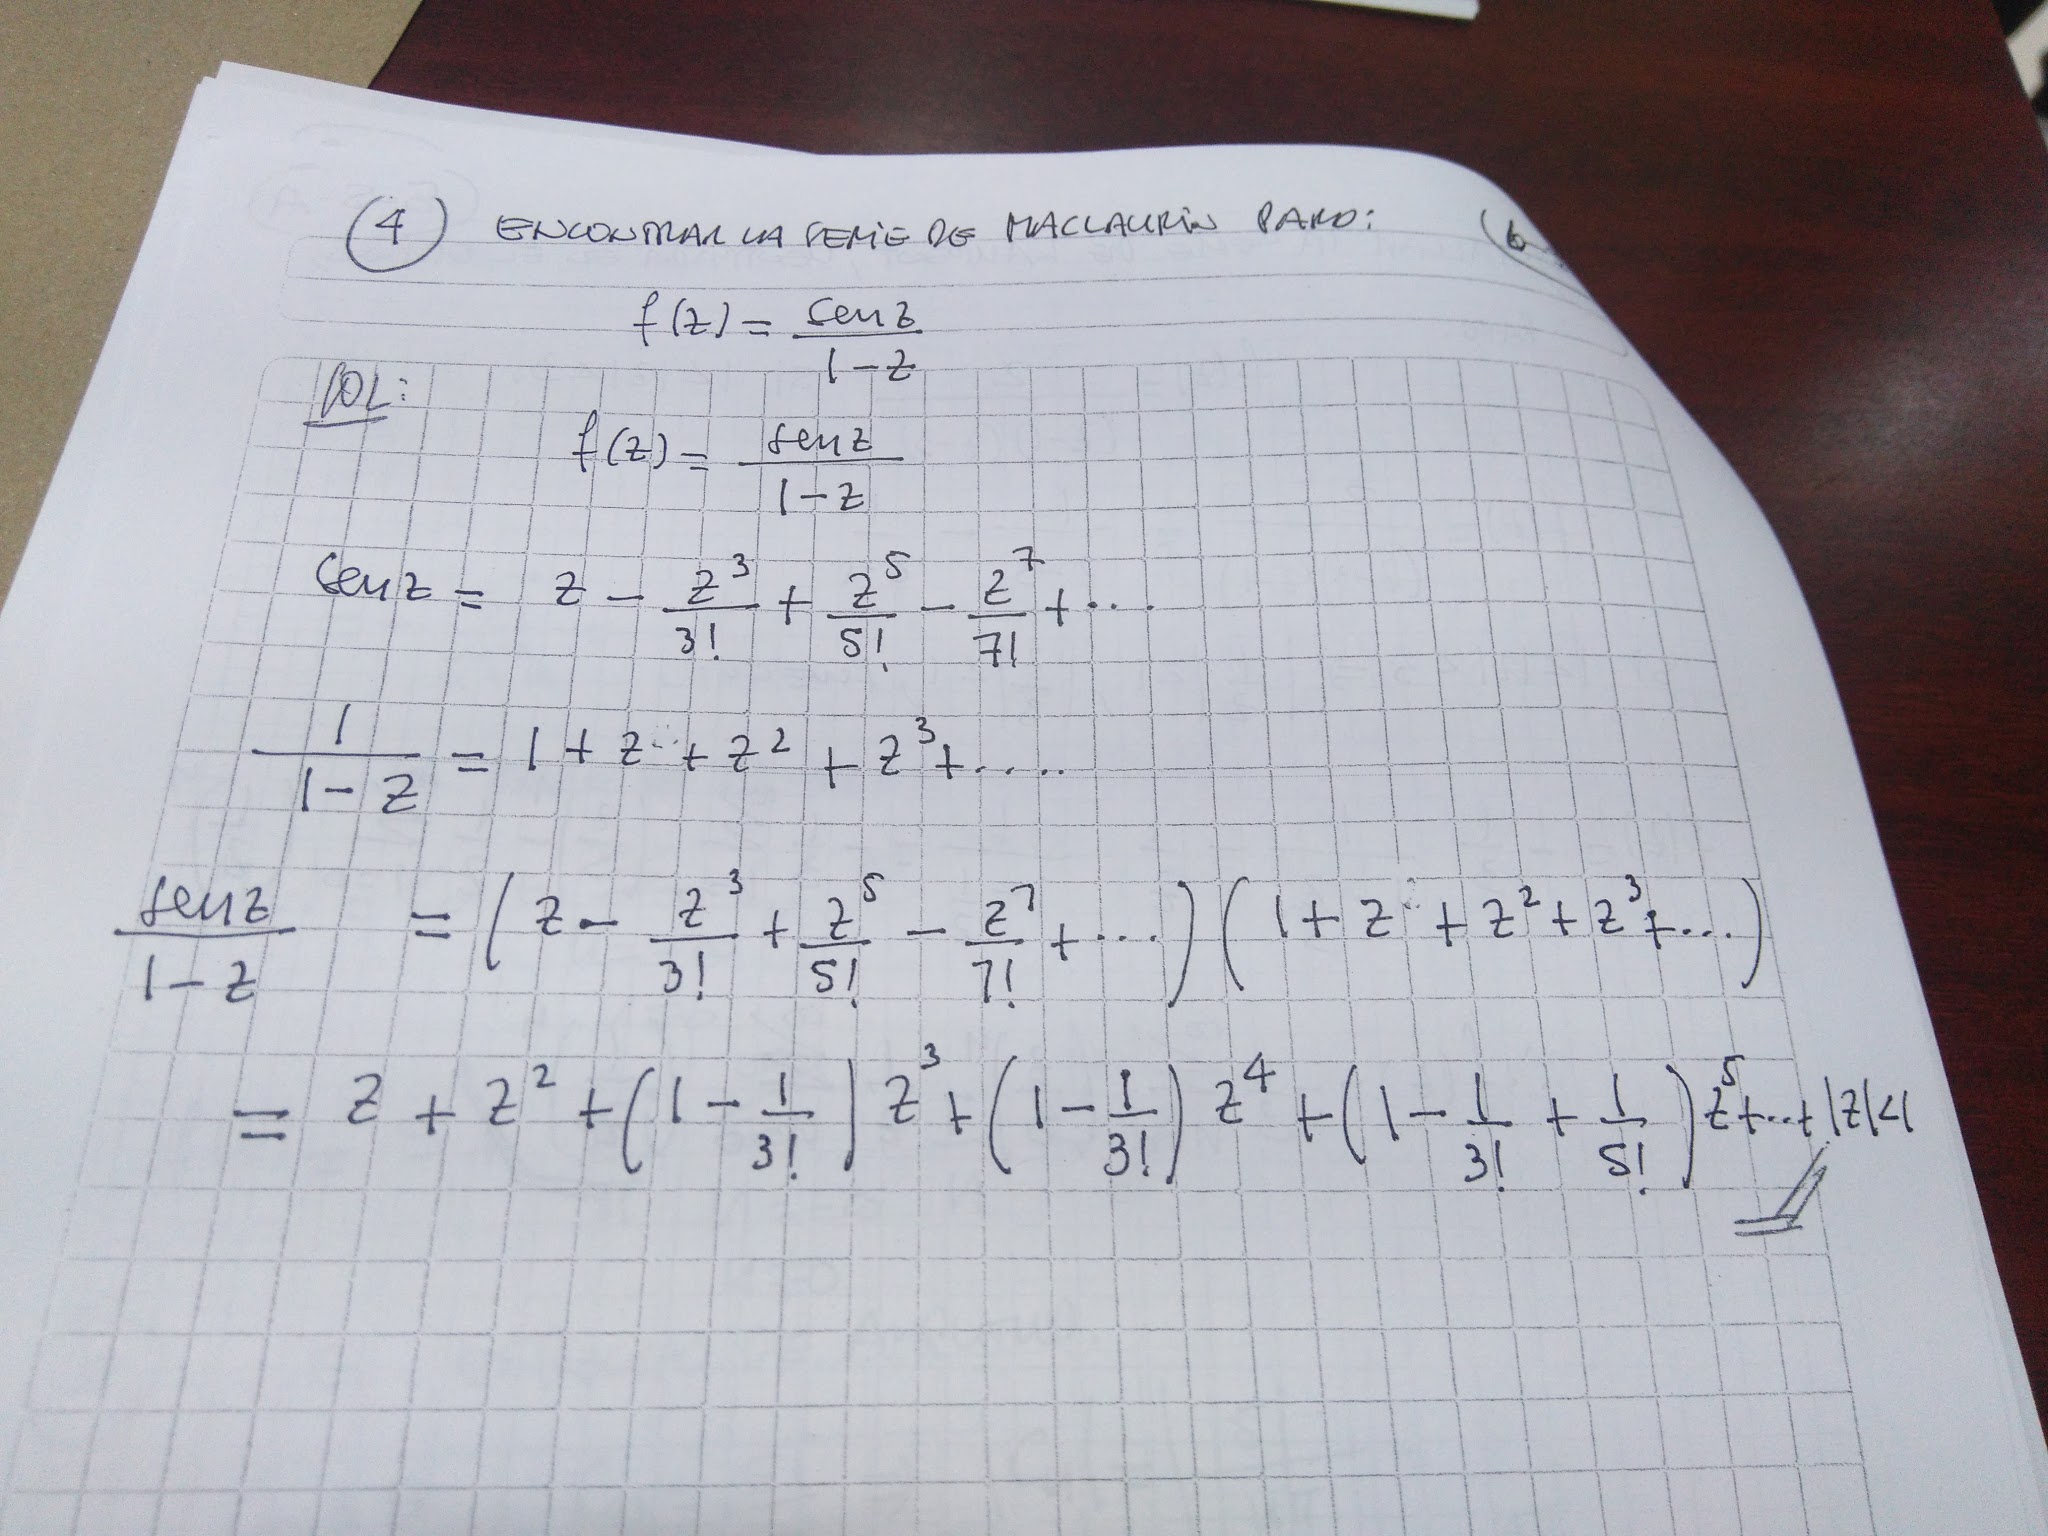 ④ ENCONTRAR LA SERIE DE MACLAURIN PARA: (6
f(z) = sen z / (1 - z)
SOL:
f(z) = sen z / (1 - z)
sen z = z - z³/3! + z⁵/5! - z⁷/7! + ...
1/(1 - z) = 1 + z + z² + z³ + .....
sen z / (1 - z) = (z - z³/3! + z⁵/5! - z⁷/7! + ...)(1 + z + z² + z³ + ...)
= z + z² + (1 - 1/3!) z³ + (1 - 1/3!) z⁴ + (1 - 1/3! + 1/5!) z⁵ + ... + |z|<1